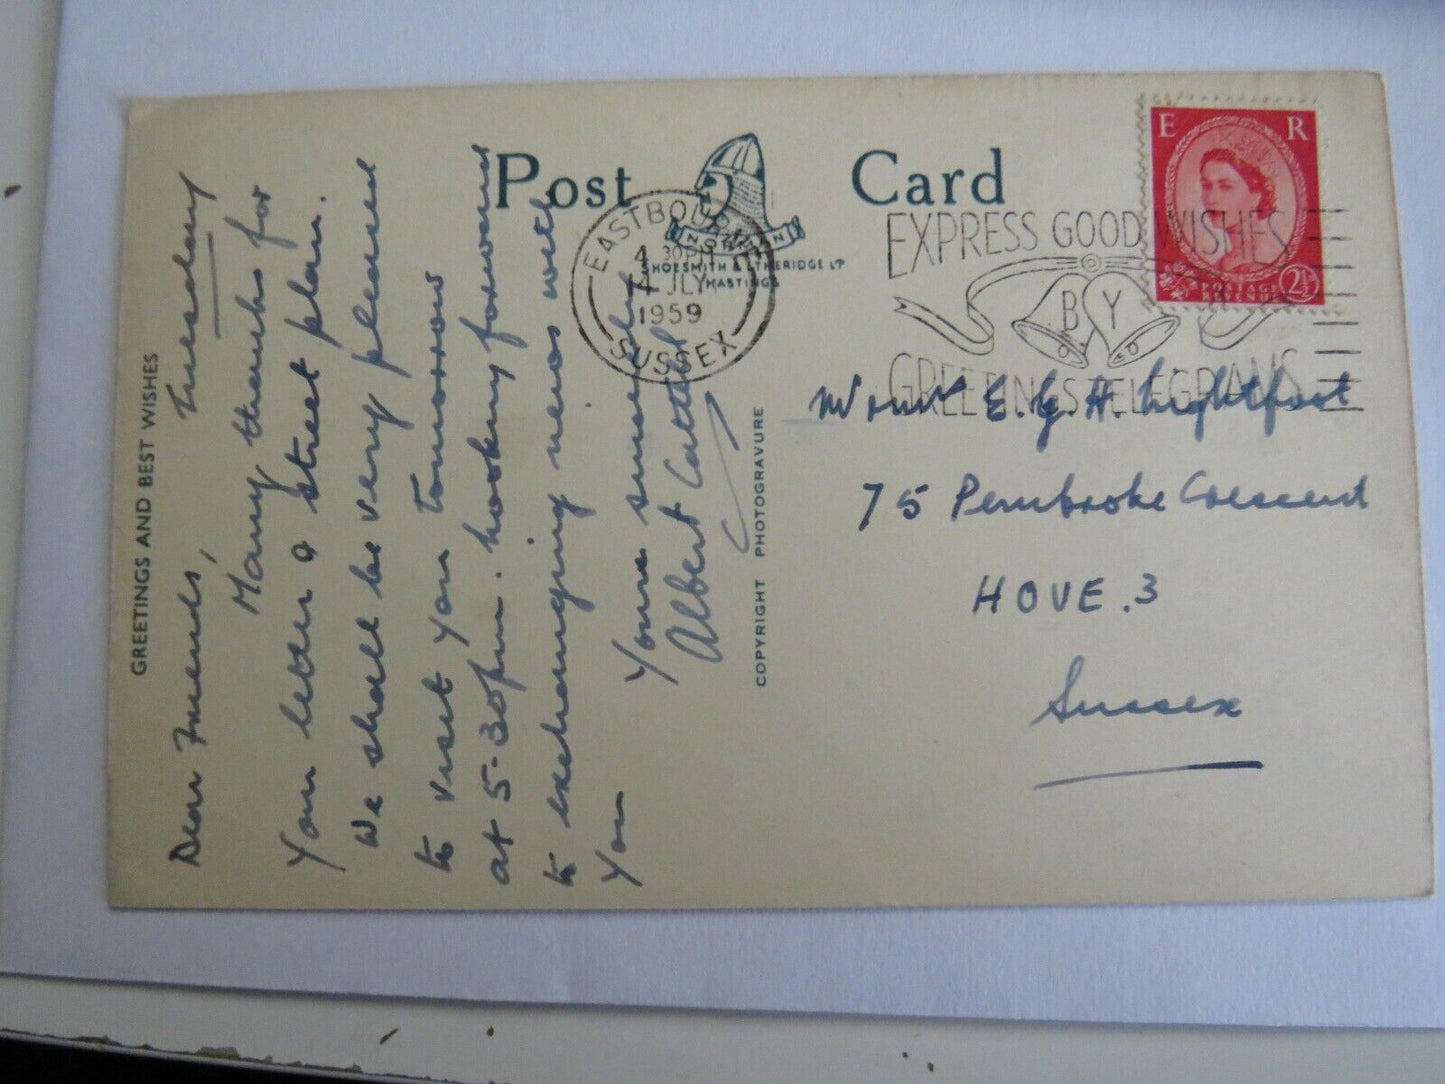 Post Card
NORMAN
SHOESMITH & ETHERIDGE LTD
HASTINGS
EASTBOURNE
4 30PM
JLY
1959
SUSSEX
EXPRESS GOOD WISHES
BY
GREETINGS TELEGRAMS
E R
POSTAGE
REVENUE
2½
GREETINGS AND BEST WISHES
Tuesday
Dear Friends,
Many thanks for
your letter & street plan.
We shall be very pleased
to visit you tomorrow
at 5-30pm. Looking forward
to exchanging news with
you
Yours sincerely
Albert Cattell
COPYRIGHT PHOTOGRAVURE
E. G. H. Lightfoot
75 Pembroke Crescent
HOVE. 3
Sussex